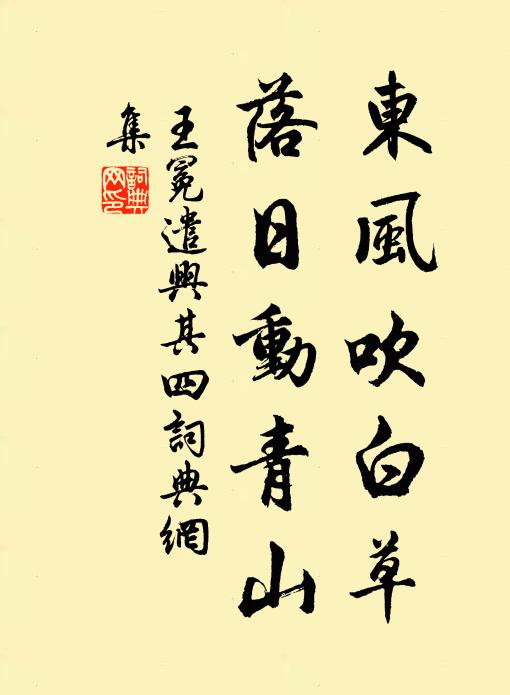 東風吹白草
落日動青山
王冕遣興其四詞典網
集
詞典
网印